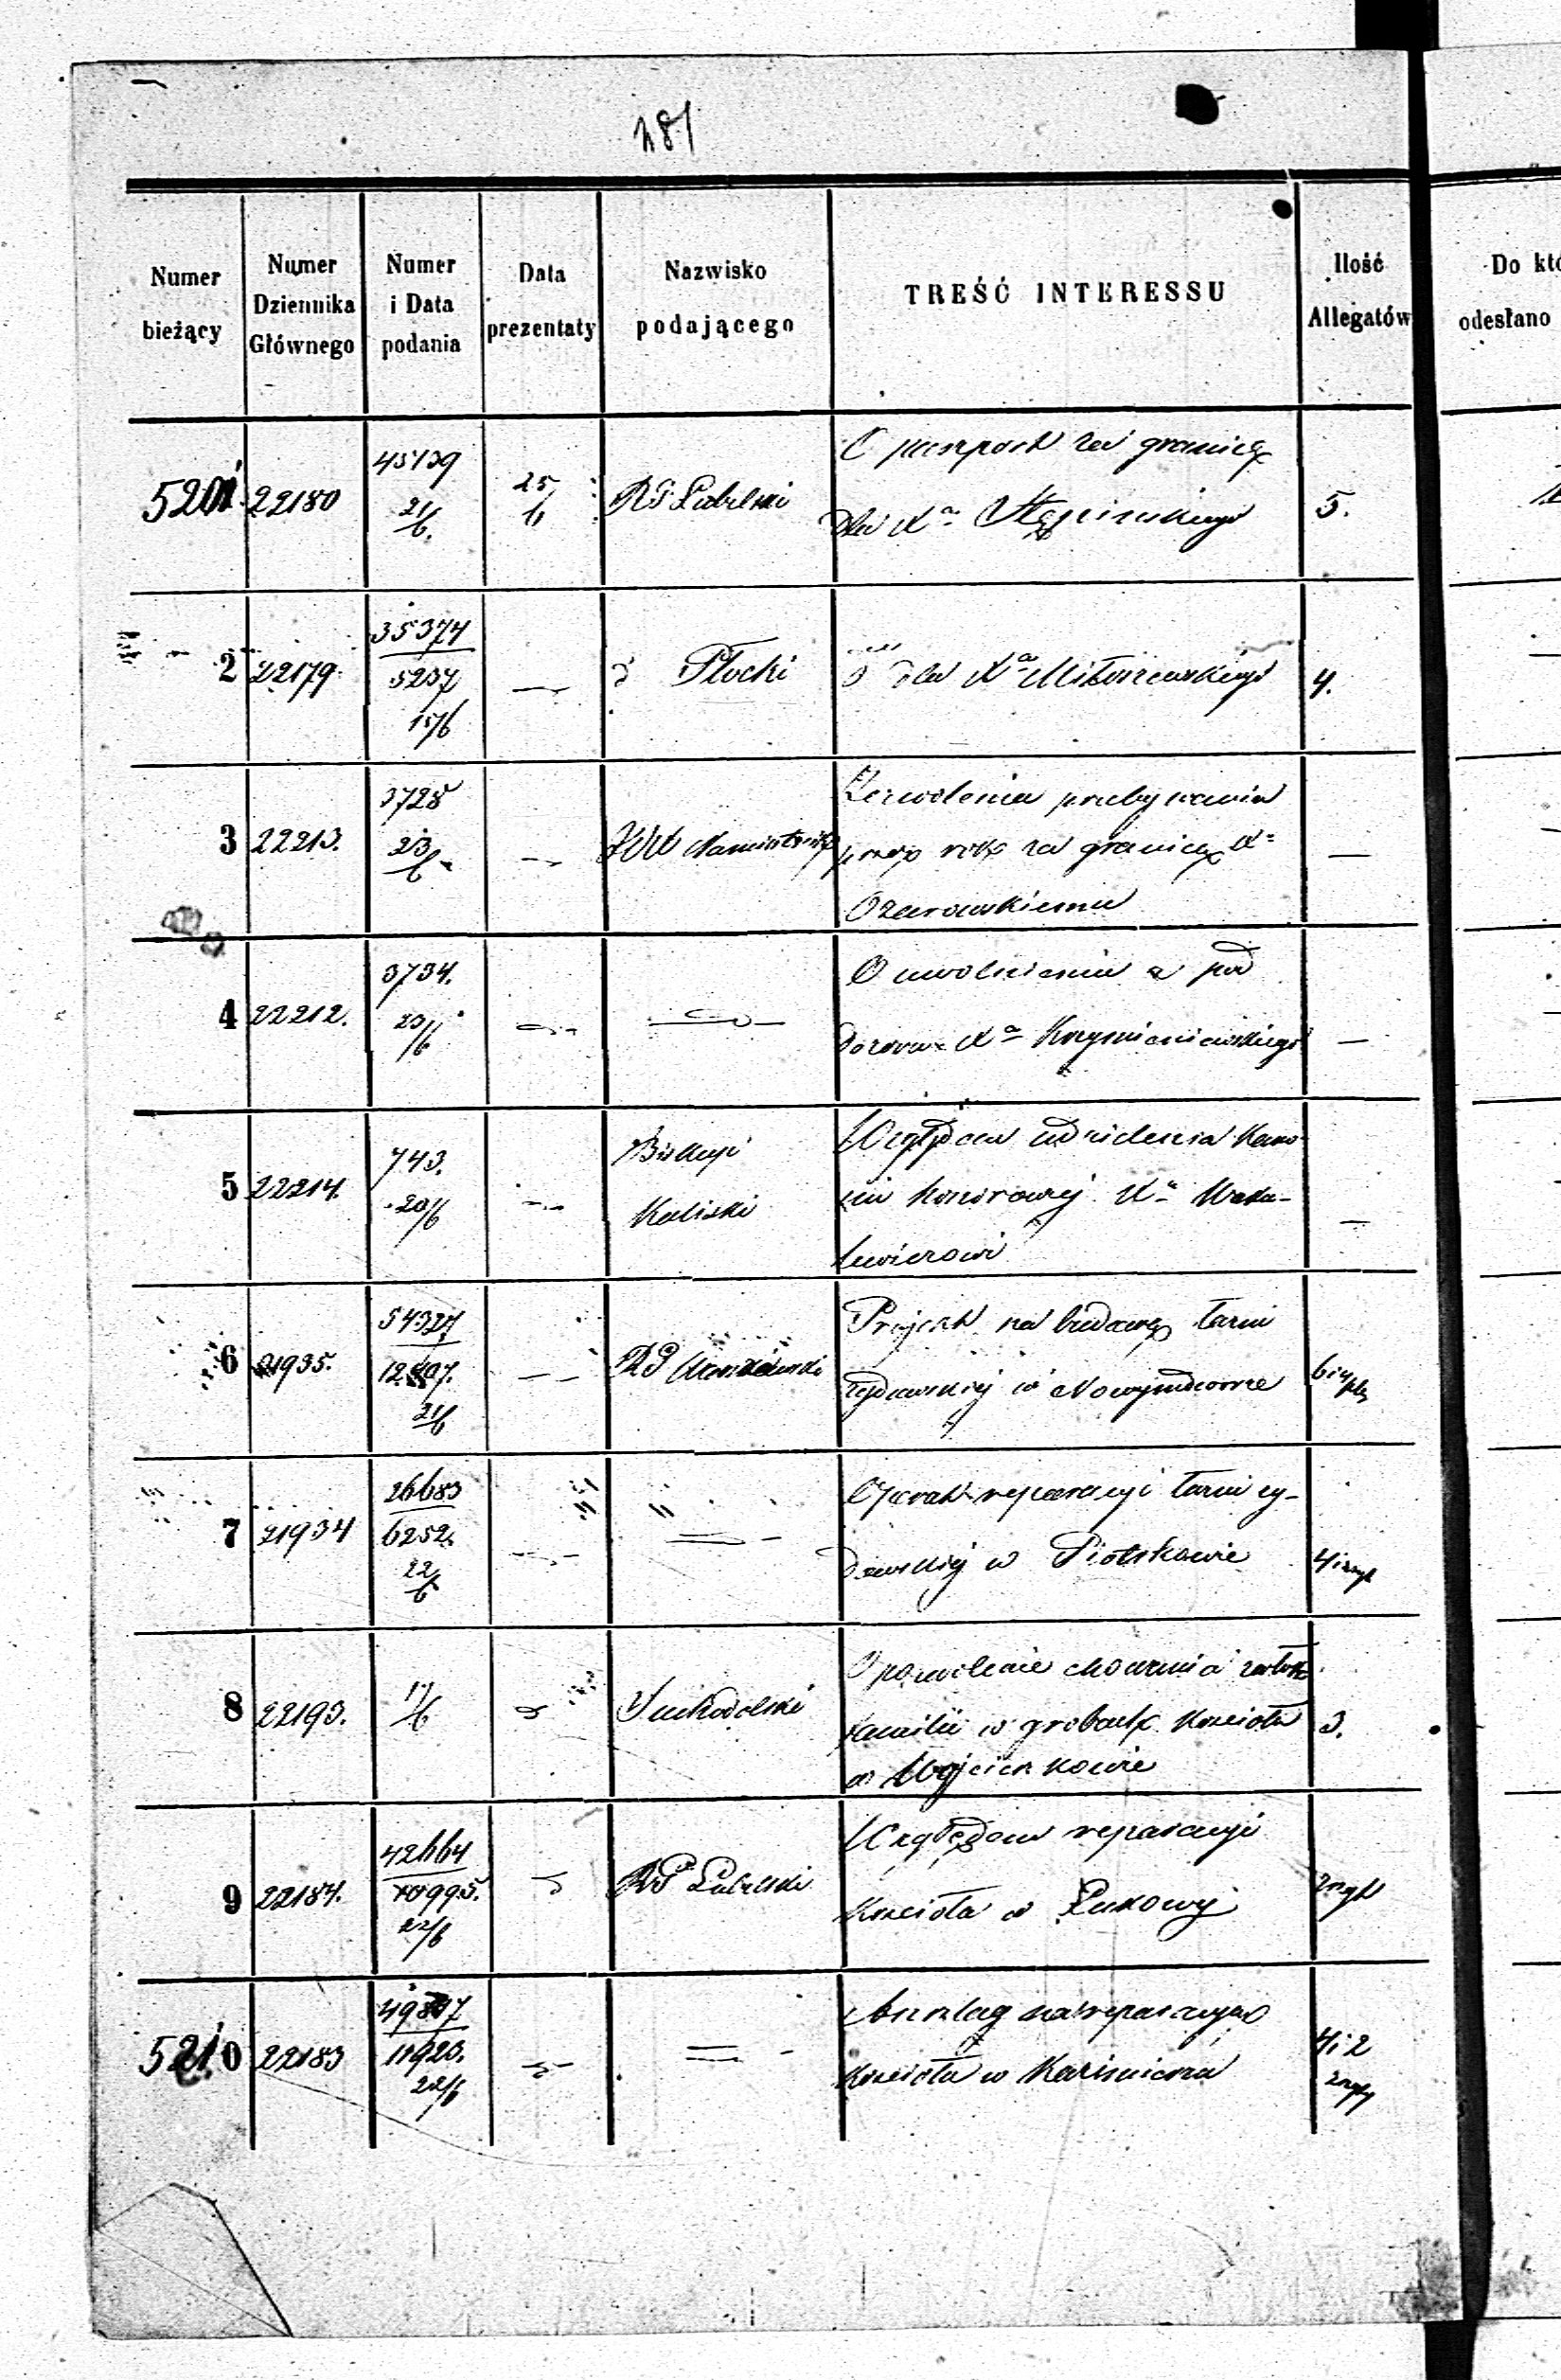 281
Numer bieżący
Numer Dziennika Głównego
Numer i Data podania
Data prezentaty
Nazwisko podającego
TREŚĆ INTERESSU
Ilość Allegatów
Do któ
odesłano
5201 22180 45139 21/6 25/6 RG Lubelski O paszport za granicę 5.
dla Xa Stępińskiego
2 22179 35374 5237 15/6 — d Płocki d dla Xa Miłoszewskiego 4.
3 22213. 3728 23/6 — JW Namiestnik Zezwolenia przebywania —
przez rok za granicą Xa
Ożarowskiemu
4 22212. 3734. 23/6 — — O uwolnieniu z pod —
dozoru Xa
5 22214. 743. 20/6 — Biskup Kaliski Względem udzielenia Kano- —
nii honorowej Xa
6 21935. 54327 21/6 — RG Warszawski Projekt na budowę łaźni
żydowskiej w Nowymdworze
7 21934 26683 6252. 22/6 — = Operat reparacyi łaźni ży-
dowskiej w Piotrkowie
8 22193. 17/6 Suchodolski O pozwolenie chowania zwłok 3.
familii w grobach Kościoła
w Wojcieszkowie
9 22184. 42664 10995. 22/6 RG Lubelski Względem reparacyi
Kościoła w Łukowej
5210 22183 11923. 22/6 — = Anszlag na reparacyą 4 i 2
Kościoła w Kazimierzu